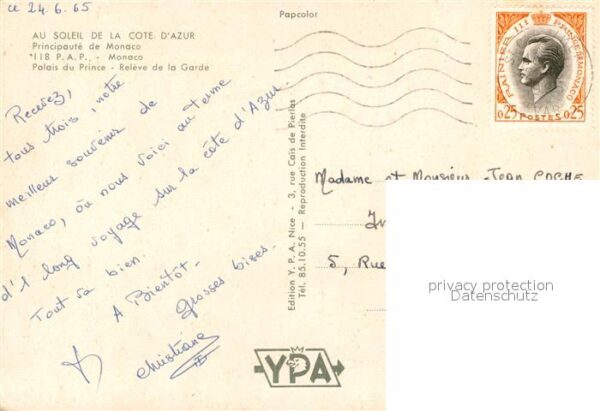 ce 24.6.65
Papcolor
AU SOLEIL DE LA COTE D'AZUR
Principauté de Monaco
*118 P.A.P. - Monaco
Palais du Prince - Relève de la Garde
Recevez,
tous trois, notre
meilleur souvenir de
Monaco, où nous voici au terme
d'1 long voyage sur la côte d'Azur.
Tout va bien.
A Bientôt.
Grosses bises.
Christiane
Edition Y.P.A. Nice - 3, rue Caïs de Pierlas
Tél. 85.10.55 - Reproduction Interdite
YPA
RAINIER III PRINCE DE MONACO
0.25 POSTES 0.25
Madame et Monsieur Jean
5, Rue
privacy protection
Datenschutz